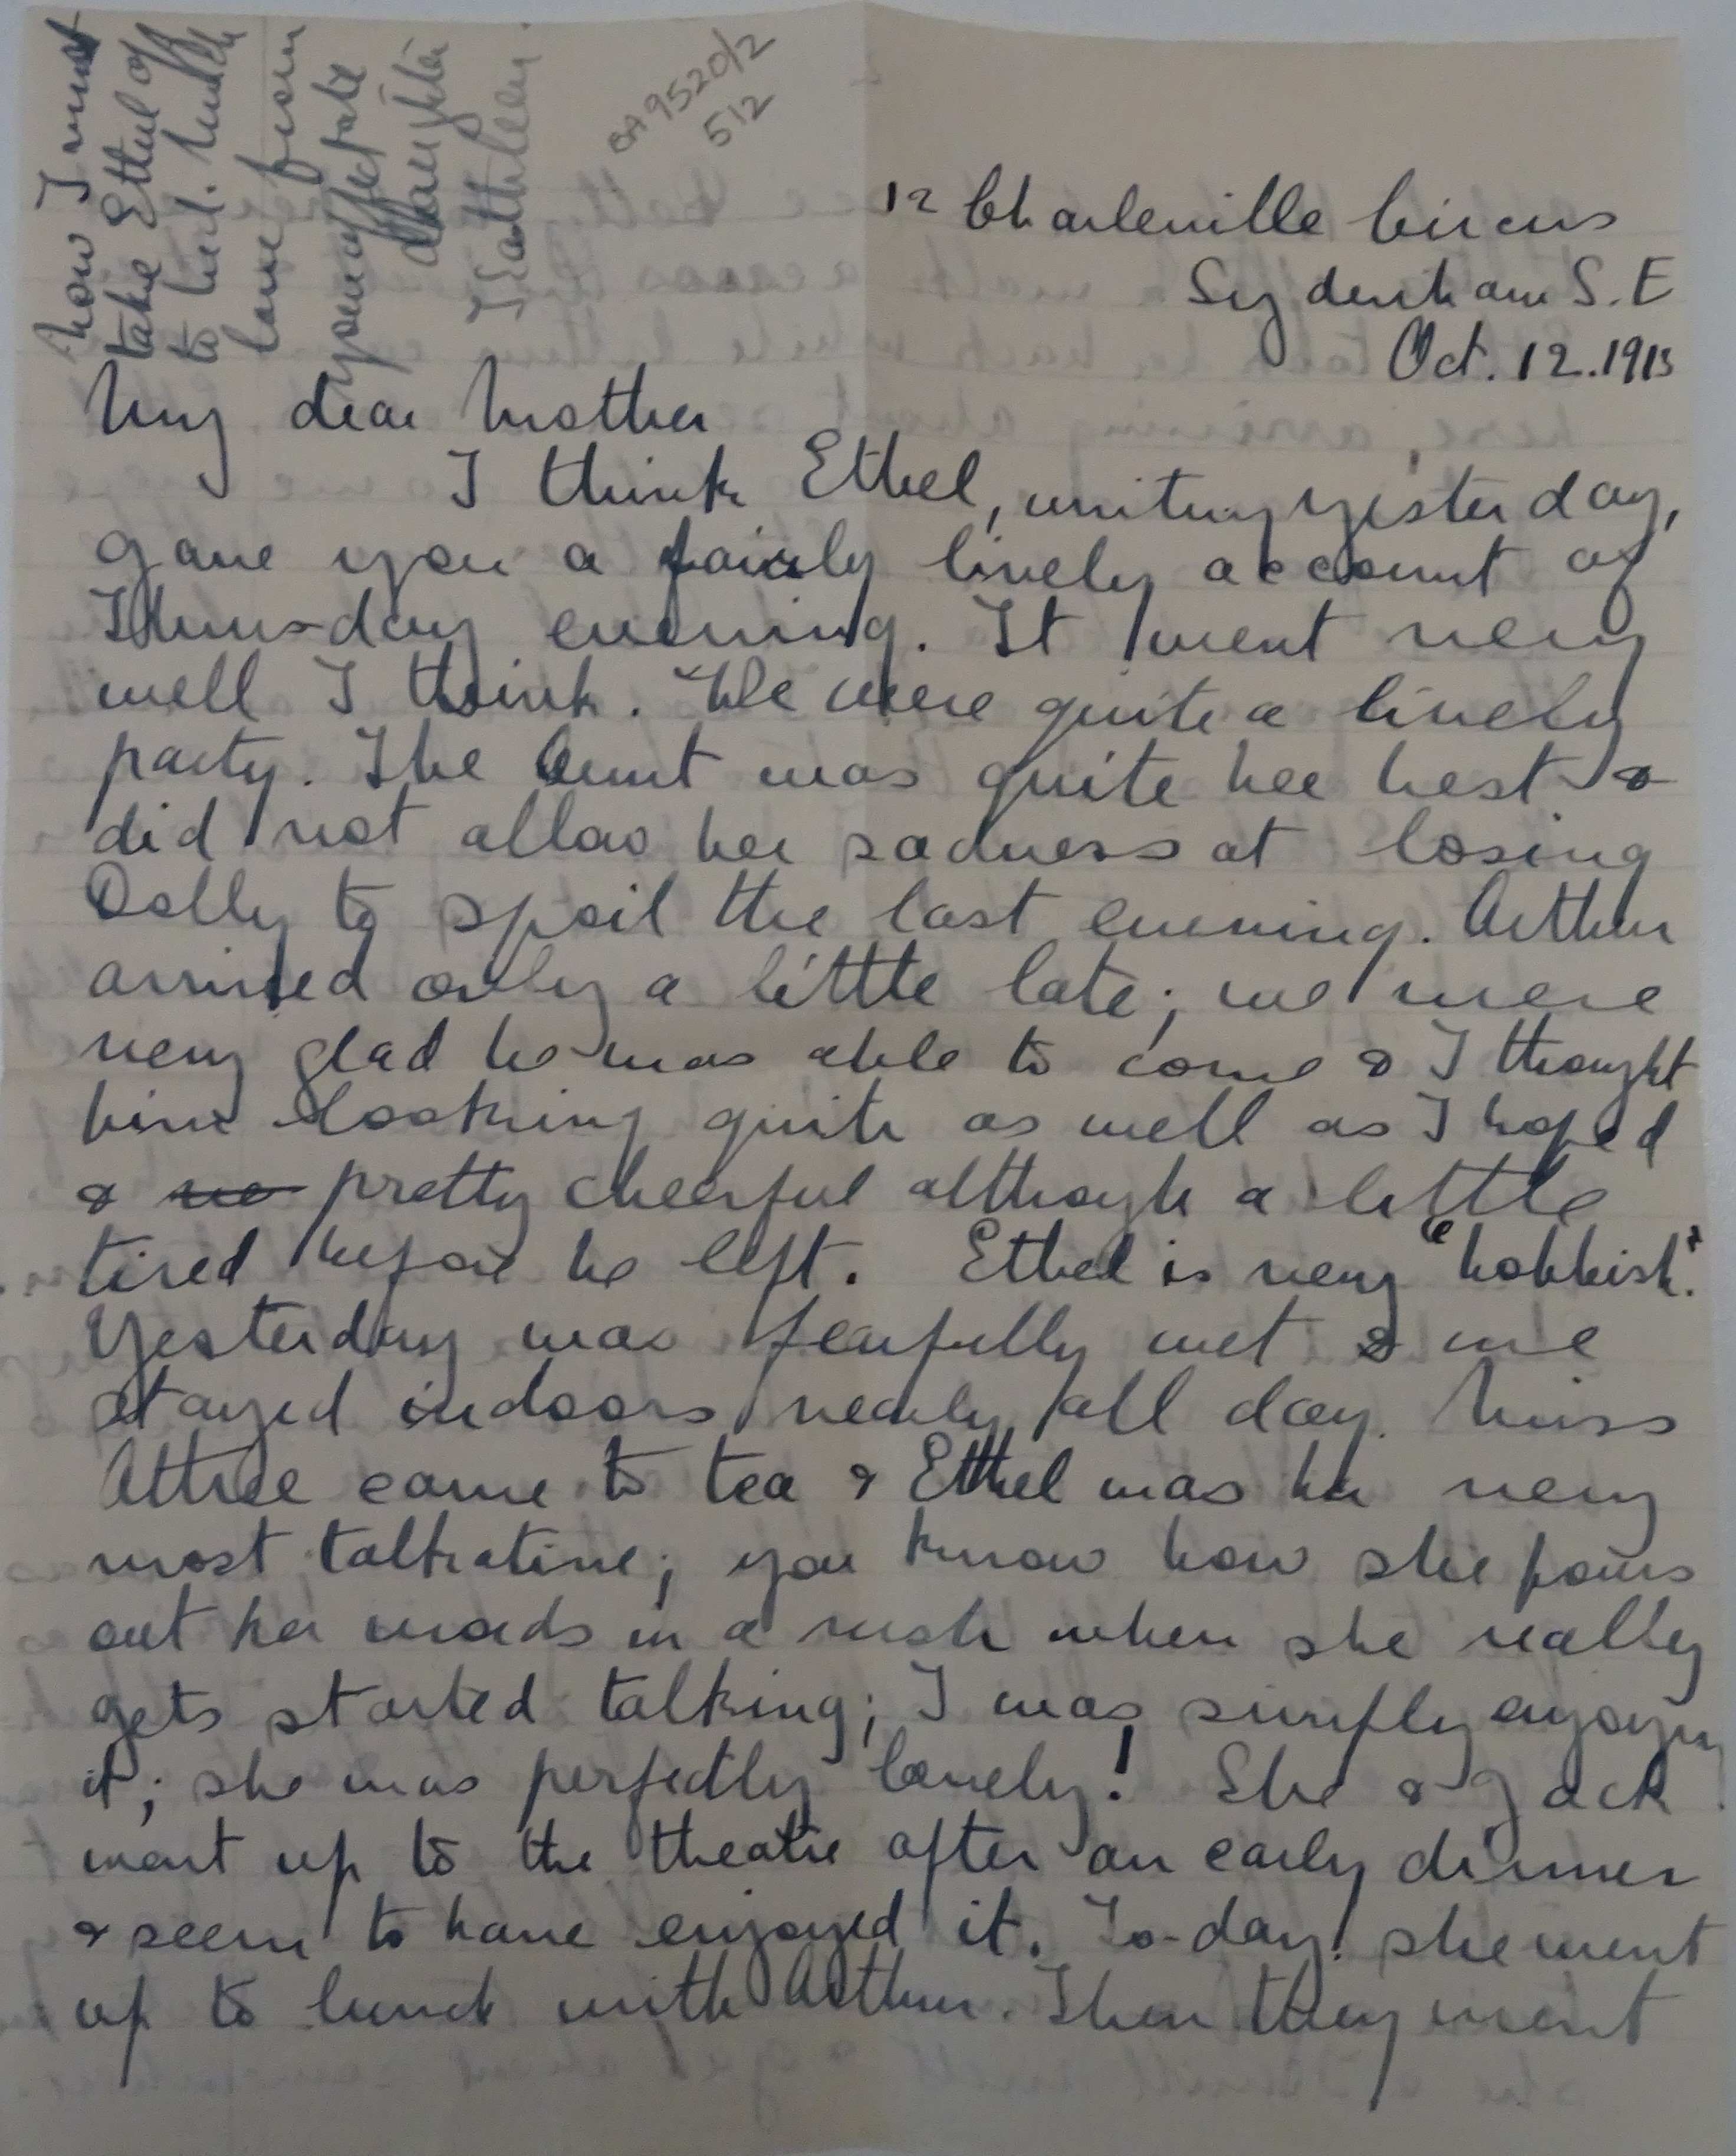 now I must
take Ethel off
to bed. Much
love from
your affectate
daughter
Kathleen.
BA 9520/2
512
12 Charleville Circus
Sydenham S.E
Oct. 12. 1913
My dear Mother
I think Ethel, writing yesterday,
gave you a fairly lively account of
Thursday evening. It went very
well I think. We were quite a lively
party. The Aunt was quite her best &
did not allow her sadness at losing
Dolly to spoil the last evening. Arthur
arrived only a little late; we were
very glad he was able to come & I thought
him looking quite as well as I hoped
& pretty cheerful although a little
tired before he left. Ethel is very "bobbish".
Yesterday was fearfully wet & we
stayed indoors nearly all day. Miss
Attree came to tea & Ethel was her very
most talkative; you know how she pours
out her words in a rush when she really
gets started talking; I was simply enjoying
it; she was perfectly lovely! She & Jack
went up to the theatre after an early dinner
& seem to have enjoyed it. To-day she went
up to lunch with Arthur. Then they went